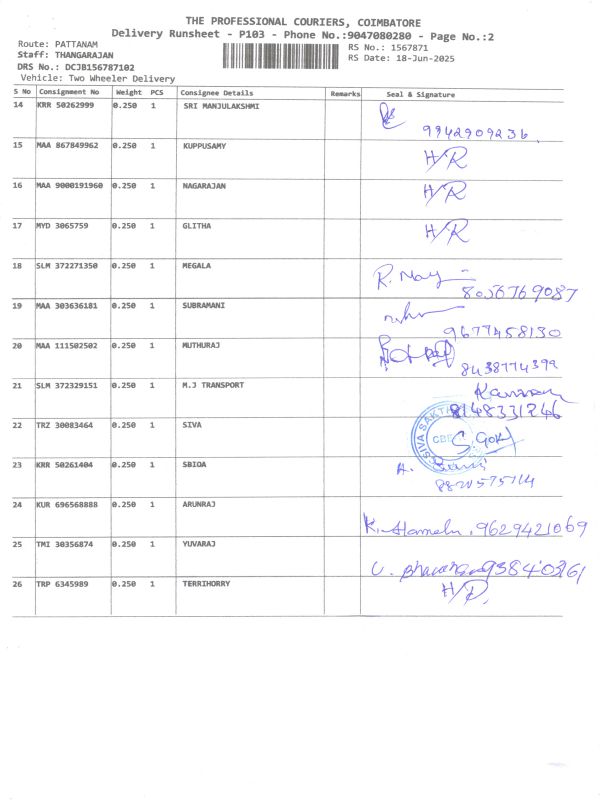 THE PROFESSIONAL COURIERS, COIMBATORE
Delivery Runsheet - P103 - Phone No.:9047080280 - Page No.:2
Route: PATTANAM RS No.: 1567871
Staff: THANGARAJAN RS Date: 18-Jun-2025
DRS No.: DCJB156787102
Vehicle: Two Wheeler Delivery
S No Consignment No Weight PCS Consignee Details Remarks Seal & Signature
14 KRR 50262999 0.250 1 SRI MANJULAKSHMI
9942909236
15 MAA 867849962 0.250 1 KUPPUSAMY H/R
16 MAA 9000191960 0.250 1 NAGARAJAN H/R
17 MYD 3065759 0.250 1 GLITHA H/R
18 SLM 372271350 0.250 1 MEGALA R. May
8056769087
19 MAA 303636181 0.250 1 SUBRAMANI
9677458130
20 MAA 111502502 0.250 1 MUTHURAJ
8438774399
21 SLM 372329151 0.250 1 M.J TRANSPORT
8148331246
22 TRZ 30083464 0.250 1 SIVA SIVA SAKTHI S. Gok
23 KRR 50261404 0.250 1 SBIOA A.
24 KUR 696568888 0.250 1 ARUNRAJ
K. Alamelu, 9629421069
25 TMI 30356874 0.250 1 YUVARAJ
26 TRP 6345989 0.250 1 TERRIHORRY H/R